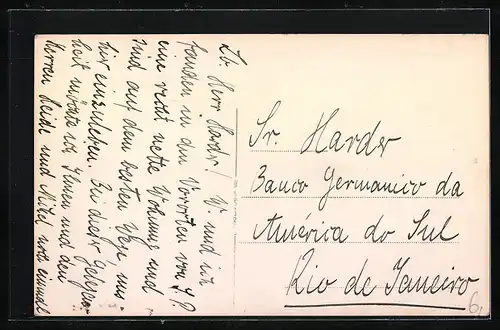 Lb. Herr Harder! W. und ich
fanden in den Vororten von S.P.
eine recht nette Wohnung und
sind auf dem besten Wege uns
hier einzuleben. Bei dieser Gelegen-
heit möchte ich Ihnen und den
Herren Heide und noch einmal
Sr. Harder
Banco Germanico da
América do Sul
Rio de Janeiro
6